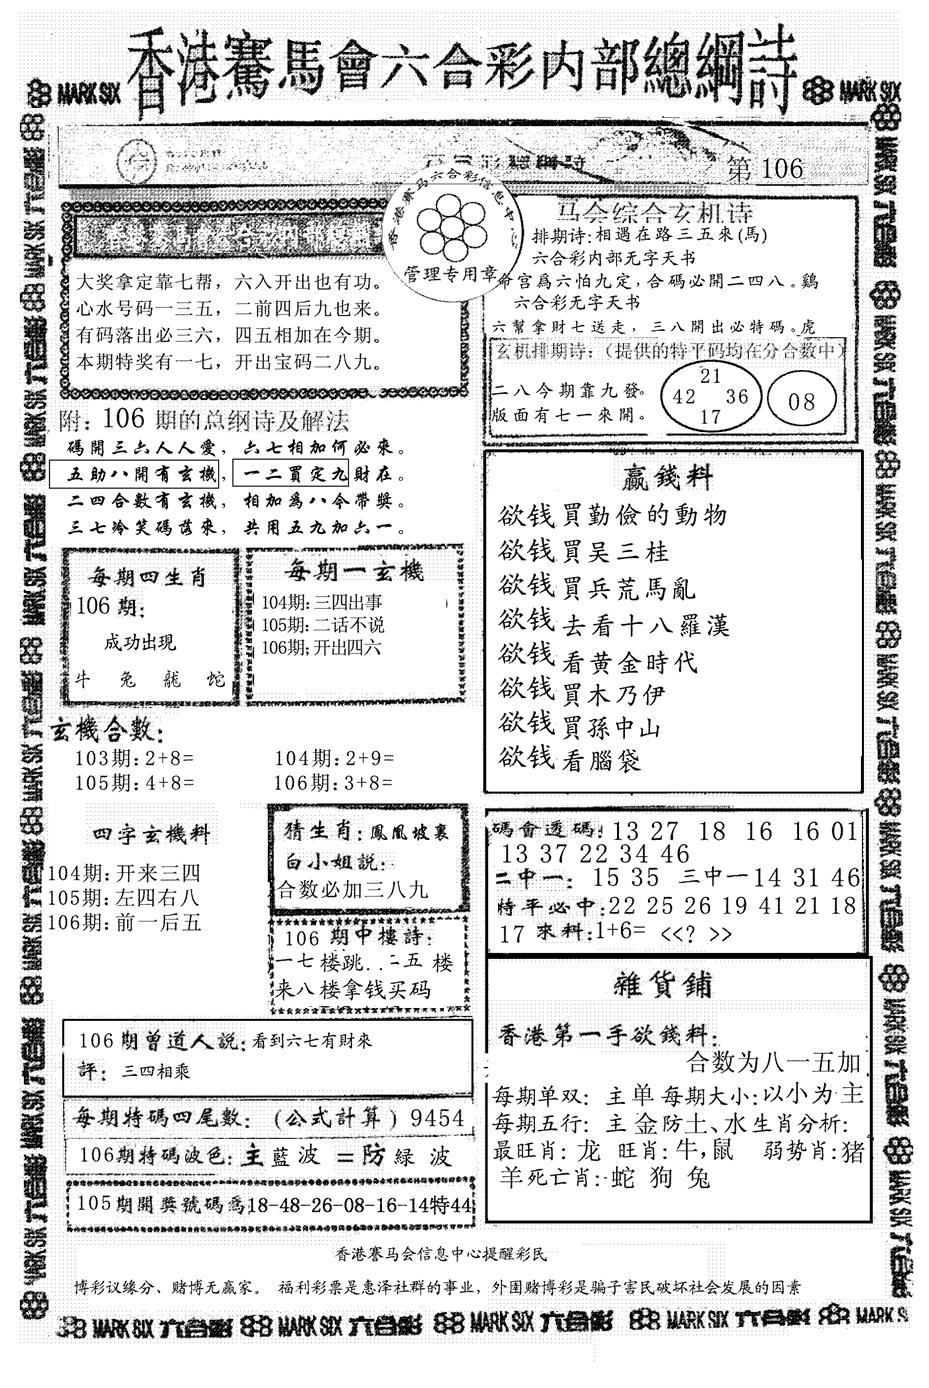 香港賽馬會六合彩内部總綱詩
MARK SIX
MARK SIX
第 106
香港赛马六合彩信息中
管理专用章
大奖拿定靠七帮，六入开出也有功。
心水号码一三五，二前四后九也来。
有码落出必三六，四五相加在今期。
本期特奖有一七，开出宝码二八九。
马会综合玄机诗
排期诗:相遇在路三五來(馬)
六合彩内部无字天书
命宫爲六怕九定,合碼必開二四八。鷄
六合彩无字天书
六幫拿財七送走，三八開出必特碼。虎
玄机排期诗:（提供的特平码均在分合数中）
二八今期靠九發。
版面有七一來開。
21
42 36
17
08
附: 106 期的总纲诗及解法
碼開三六人人愛，六七相加何必來。
五助八開有玄機，一二買定九財在。
二四合數有玄機，相加爲八今帶獎。
三七冷笑碼落來，共用五九加六一。
每期四生肖
106期:
成功出現
牛 兔 龍 蛇
每期一玄機
104期:三四出事
105期:二话不说
106期;开出四六
贏錢料
欲钱買勤儉的動物
欲钱買吴三桂
欲钱買兵荒馬亂
欲钱去看十八羅漢
欲钱看黄金時代
欲钱買木乃伊
欲钱買孫中山
欲钱看腦袋
玄機合數:
103期:2+8= 104期:2+9=
105期:4+8= 106期:3+8=
四字玄機料
104期:开来三四
105期:左四右八
106期:前一后五
猜生肖:鳳凰坡裏
白小姐説:
合数必加三八九
106 期中樓詩:
一七楼跳..二五 楼
来八楼拿钱买码
碼會透碼:13 27 18 16 16 01
13 37 22 34 46
二中一: 15 35 三中一14 31 46
特平必中:22 25 26 19 41 21 18
17 來料:1+6= <<? >>
雜貨鋪
香港第一手欲錢料:
合数为八一五加
每期单双: 主单 每期大小:以小为主
每期五行: 主 金防土、水生肖分析:
最旺肖: 龙 旺肖:牛,鼠 弱势肖:猪
羊死亡肖:蛇 狗 兔
106期曾道人説:看到六七有財來
評: 三四相乘
每期特碼四尾數:（公式計算）9454
106期特碼波色:主藍波 =防緑 波
105期開獎號碼爲18-48-26-08-16-14特44
香港赛马会信息中心提醒彩民
博彩议缘分、赌博无赢家。 福利彩票是惠泽社群的事业，外围赌博彩是骗子害民破坏社会发展的因素
MARK SIX 六合彩 MARK SIX 六合彩 MARK SIX 六合彩 MARK SIX 六合彩 MARK SIX